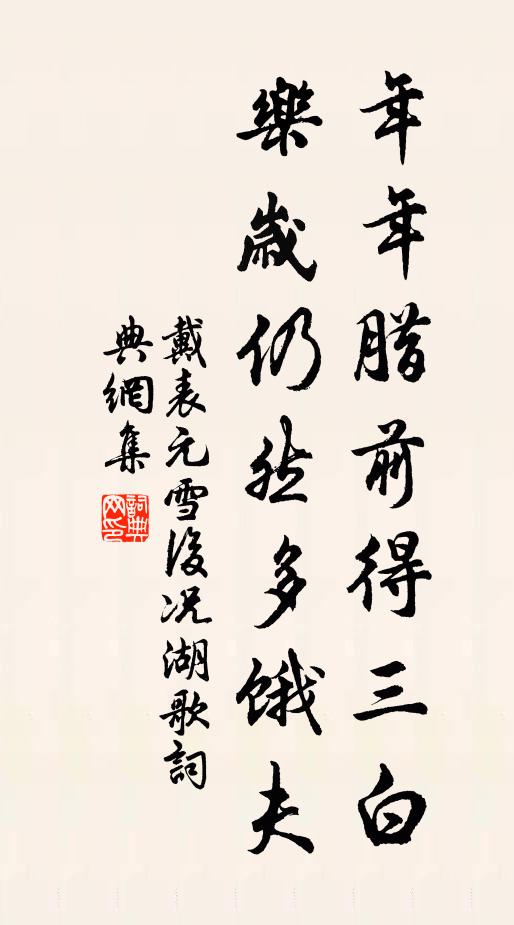 年年腊前得三白
樂歲仍然多餓夫
戴表元雪後况湖歌詞
典網集
詞典网印